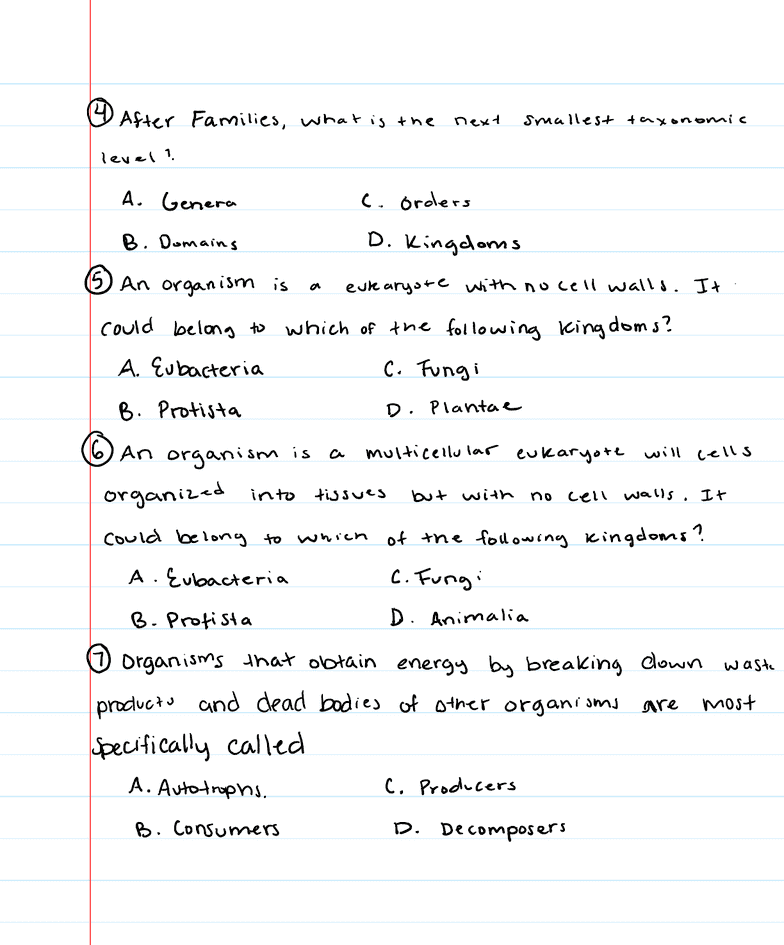 ④ After Families, what is the next smallest taxonomic
level?
A. Genera C. Orders
B. Domains D. Kingdoms
⑤ An organism is a eukaryote with no cell walls. It
could belong to which of the following kingdoms?
A. Eubacteria C. Fungi
B. Protista D. Plantae
⑥ An organism is a multicellular eukaryote will cells
organized into tissues but with no cell walls. It
could belong to which of the following kingdoms?
A. Eubacteria C. Fungi
B. Protista D. Animalia
⑦ Organisms that obtain energy by breaking down waste
products and dead bodies of other organisms are most
specifically called
A. Autotrophs. C. Producers
B. Consumers D. Decomposers